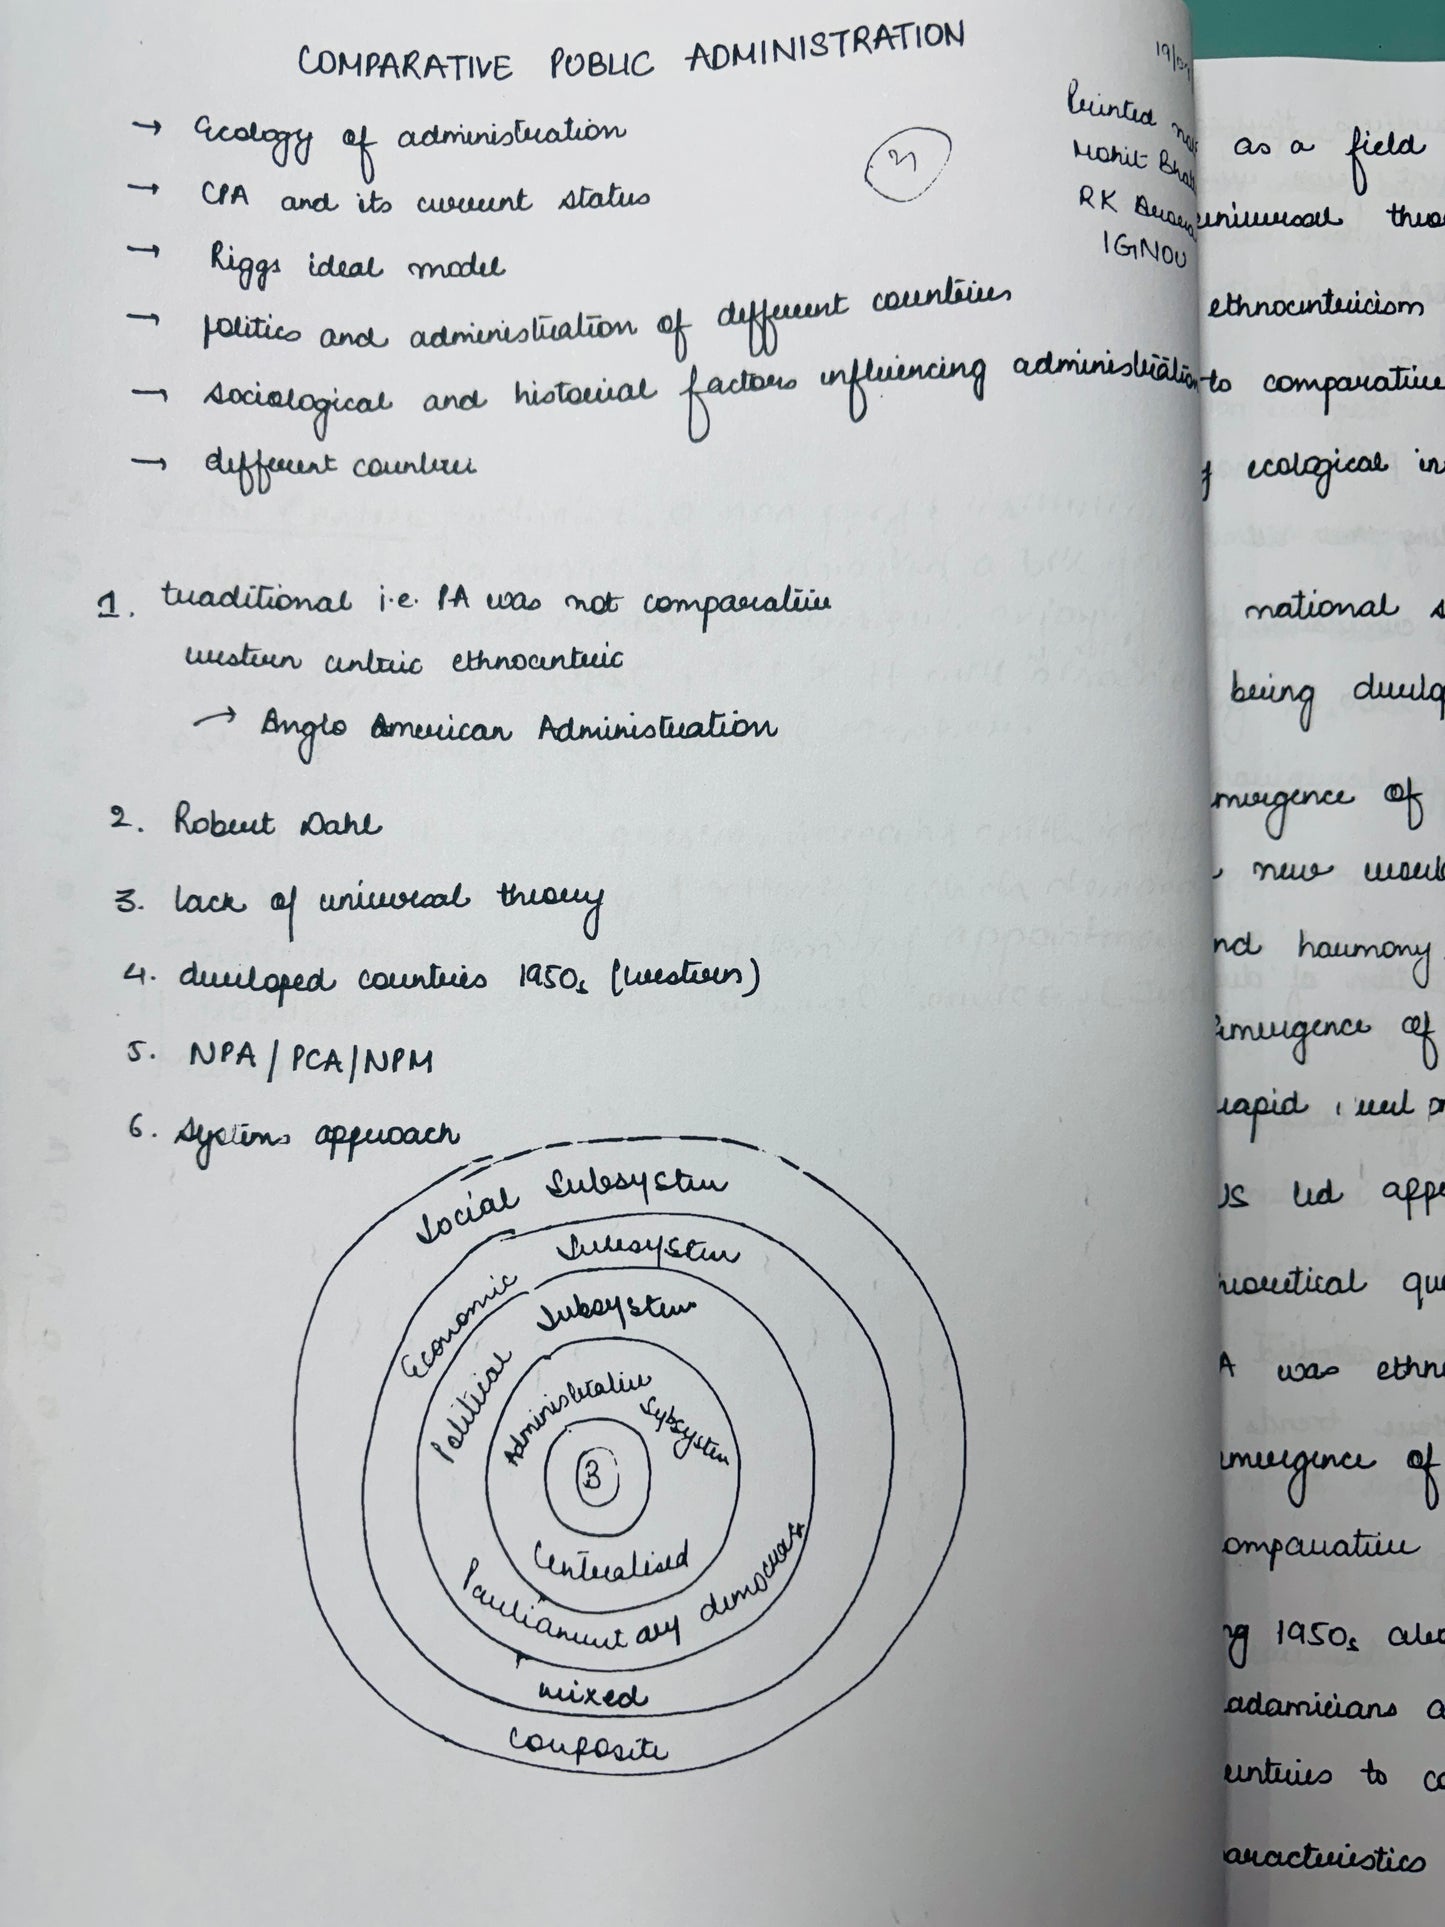 COMPARATIVE PUBLIC ADMINISTRATION
19/
Printed
Mohit
RK
IGNOU
→ Ecology of administration
→ CPA and its current status
→ Riggs ideal model
→ politics and administration of different countries
→ sociological and historical factors influencing administration
→ different countries
1. traditional i.e. PA was not comparative
western centric ethnocentric
→ Anglo American Administration
2. Robert Dahl
3. lack of universal theory
4. developed countries 1950s (western)
5. NPA / PCA / NPM
6. systems approach
Social Subsystem
Economic Subsystem
Political Subsystem
Administrative Subsystem
B
Centralised
Parliamentary democracy
mixed
composite
as a field
universal
ethnocentricism
to comparative
ecological
national
being
emergence of
new
and harmony
Emergence of
rapid
US led
theoretical
was
emergence of
comparative
1950s
academicians
countries to
characteristics